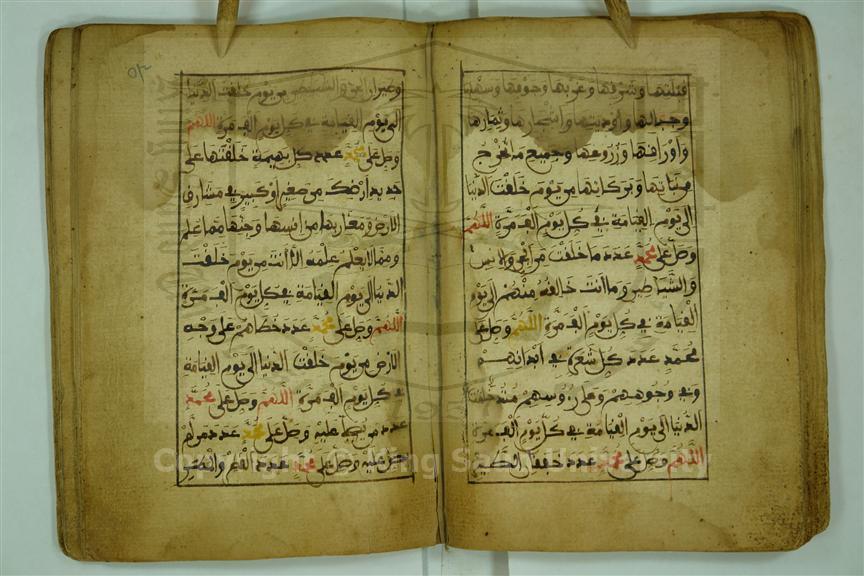 قبلتها وشرقها وغربها وجوفها وسهلها
وجبالها وأوديتها وأشجارها وثمارها
وأوراقها وزروعها وجميع ما يخرج
من نباتها وبركاتها من يوم خلقت الدنيا
إلى يوم القيامة في كل يوم ألف مرة اللهم
وصل على محمد عدد ما خلقت من الجن والإنس
والشياطين وما أنت خالقه منهم إلى يوم
القيامة في كل يوم ألف مرة اللهم وصل على
محمد عدد كل شعرة في أبدانهم
وفي وجوههم وعلى رءوسهم منذ خلقت
الدنيا إلى يوم القيامة في كل يوم ألف مرة
اللهم وصل على محمد عدد خفقان الطير
وطيران الجن والشياطين من يوم خلقت الدنيا
إلى يوم القيامة في كل يوم ألف مرة اللهم
وصل على محمد عدد كل بهيمة خلقتها على
جديد أرضك من صغير أو كبير في مشارق
الأرض ومغاربها من إنسها وجنها مما علم
ومما لا يعلم علمه إلا أنت من يوم خلقت
الدنيا إلى يوم القيامة في كل يوم ألف مرة
اللهم وصل على محمد عدد خطاهم على وجه
الأرض من يوم خلقت الدنيا إلى يوم القيامة
في كل يوم ألف مرة اللهم وصل على محمد
عدد من يصل عليه وصل على محمد عدد من لم
يصل عليه وصل على محمد عدد القطر والمطر
Copyright © King Saud University
1957